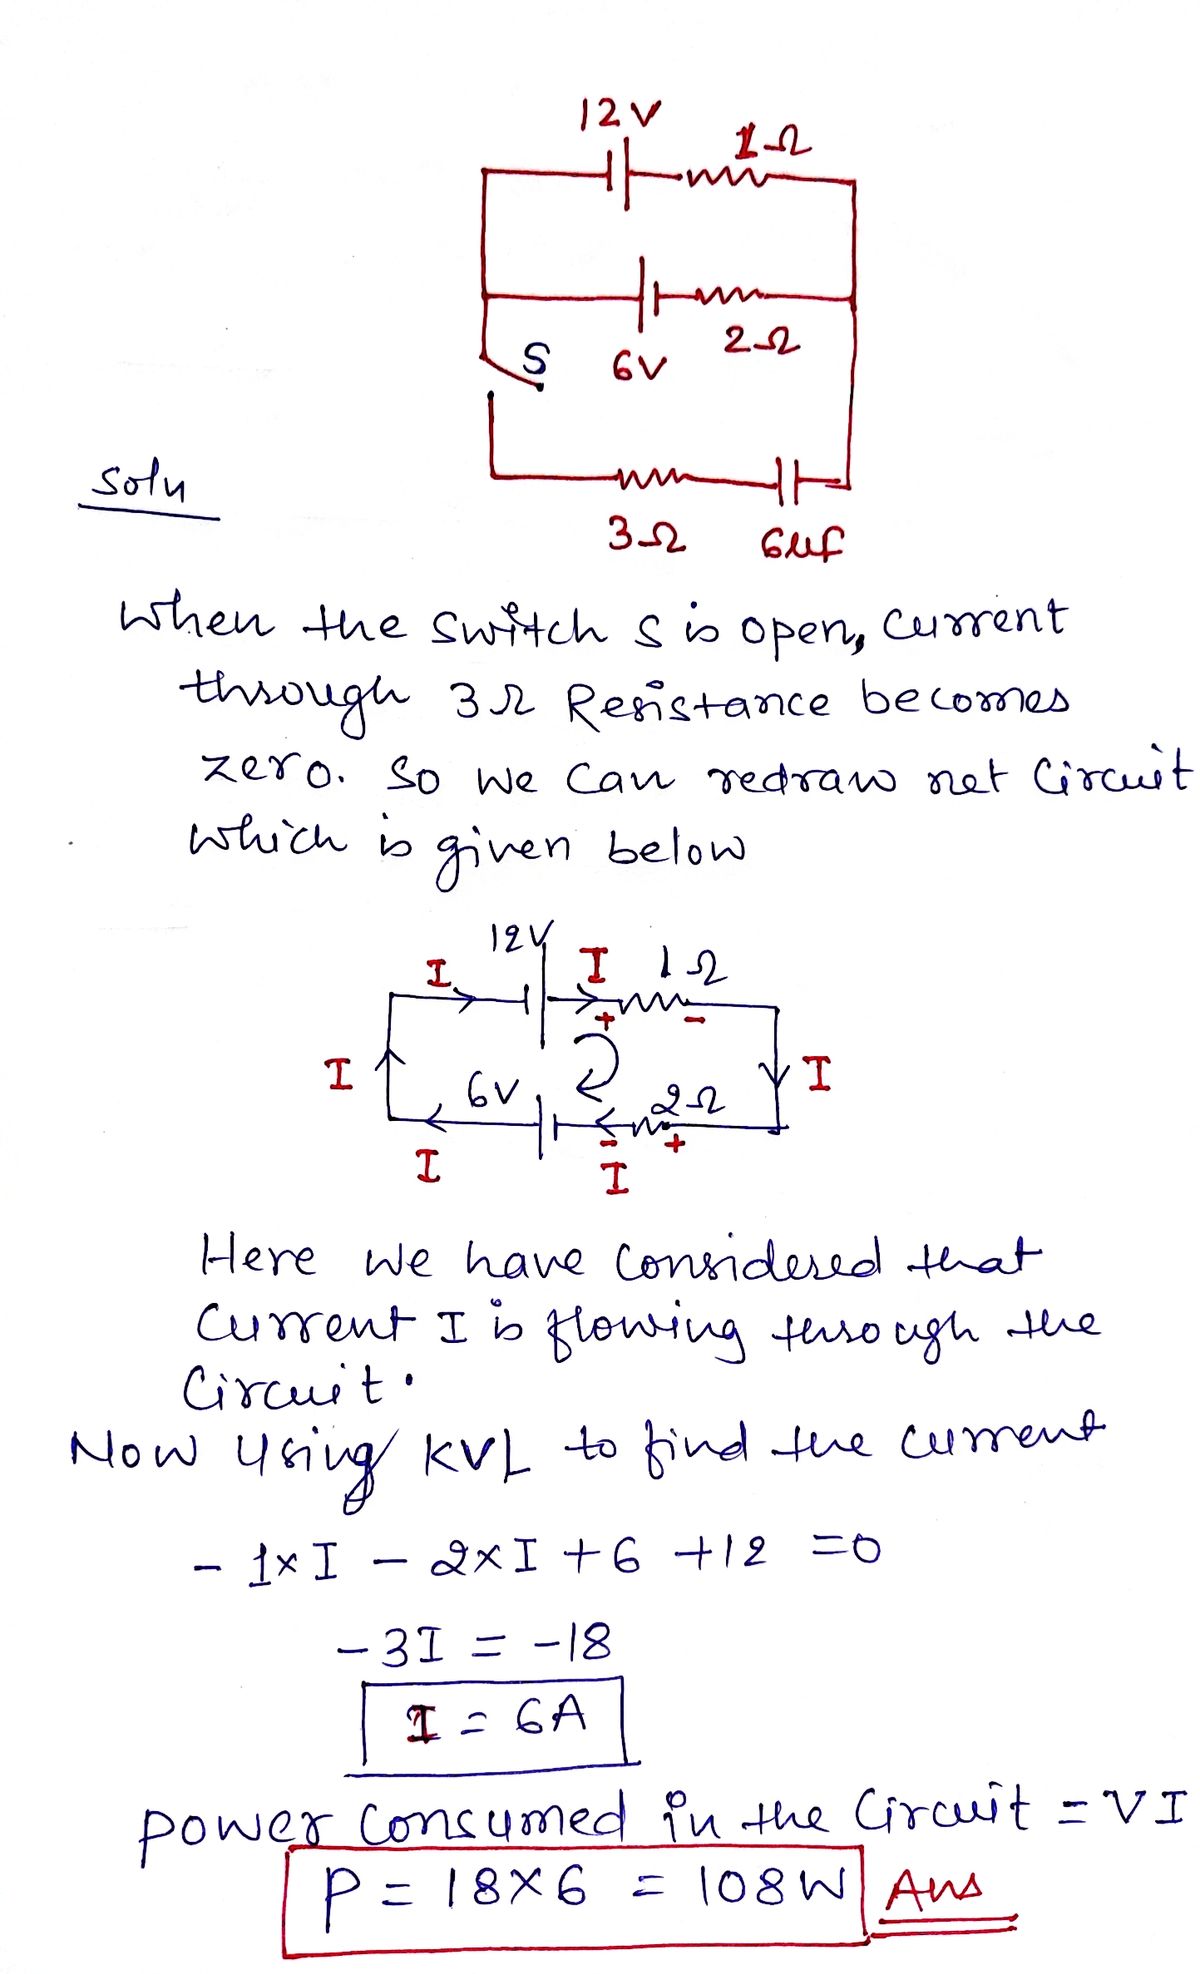 12V
1Ω
2Ω
S
6V
soln
3Ω
6μf
When the switch S is open, current
through 3Ω Resistance becomes
zero. So we can redraw net Circuit
which is given below
12V
I
I
1Ω
+
-
I
6V
2Ω
I
-
+
I
I
Here we have considered that
Current I is flowing through the
Circuit.
Now using KVL to find the current
- 1×I - 2×I + 6 + 12 = 0
-3I = -18
I = 6A
power consumed in the Circuit = VI
P = 18×6 = 108W Ans